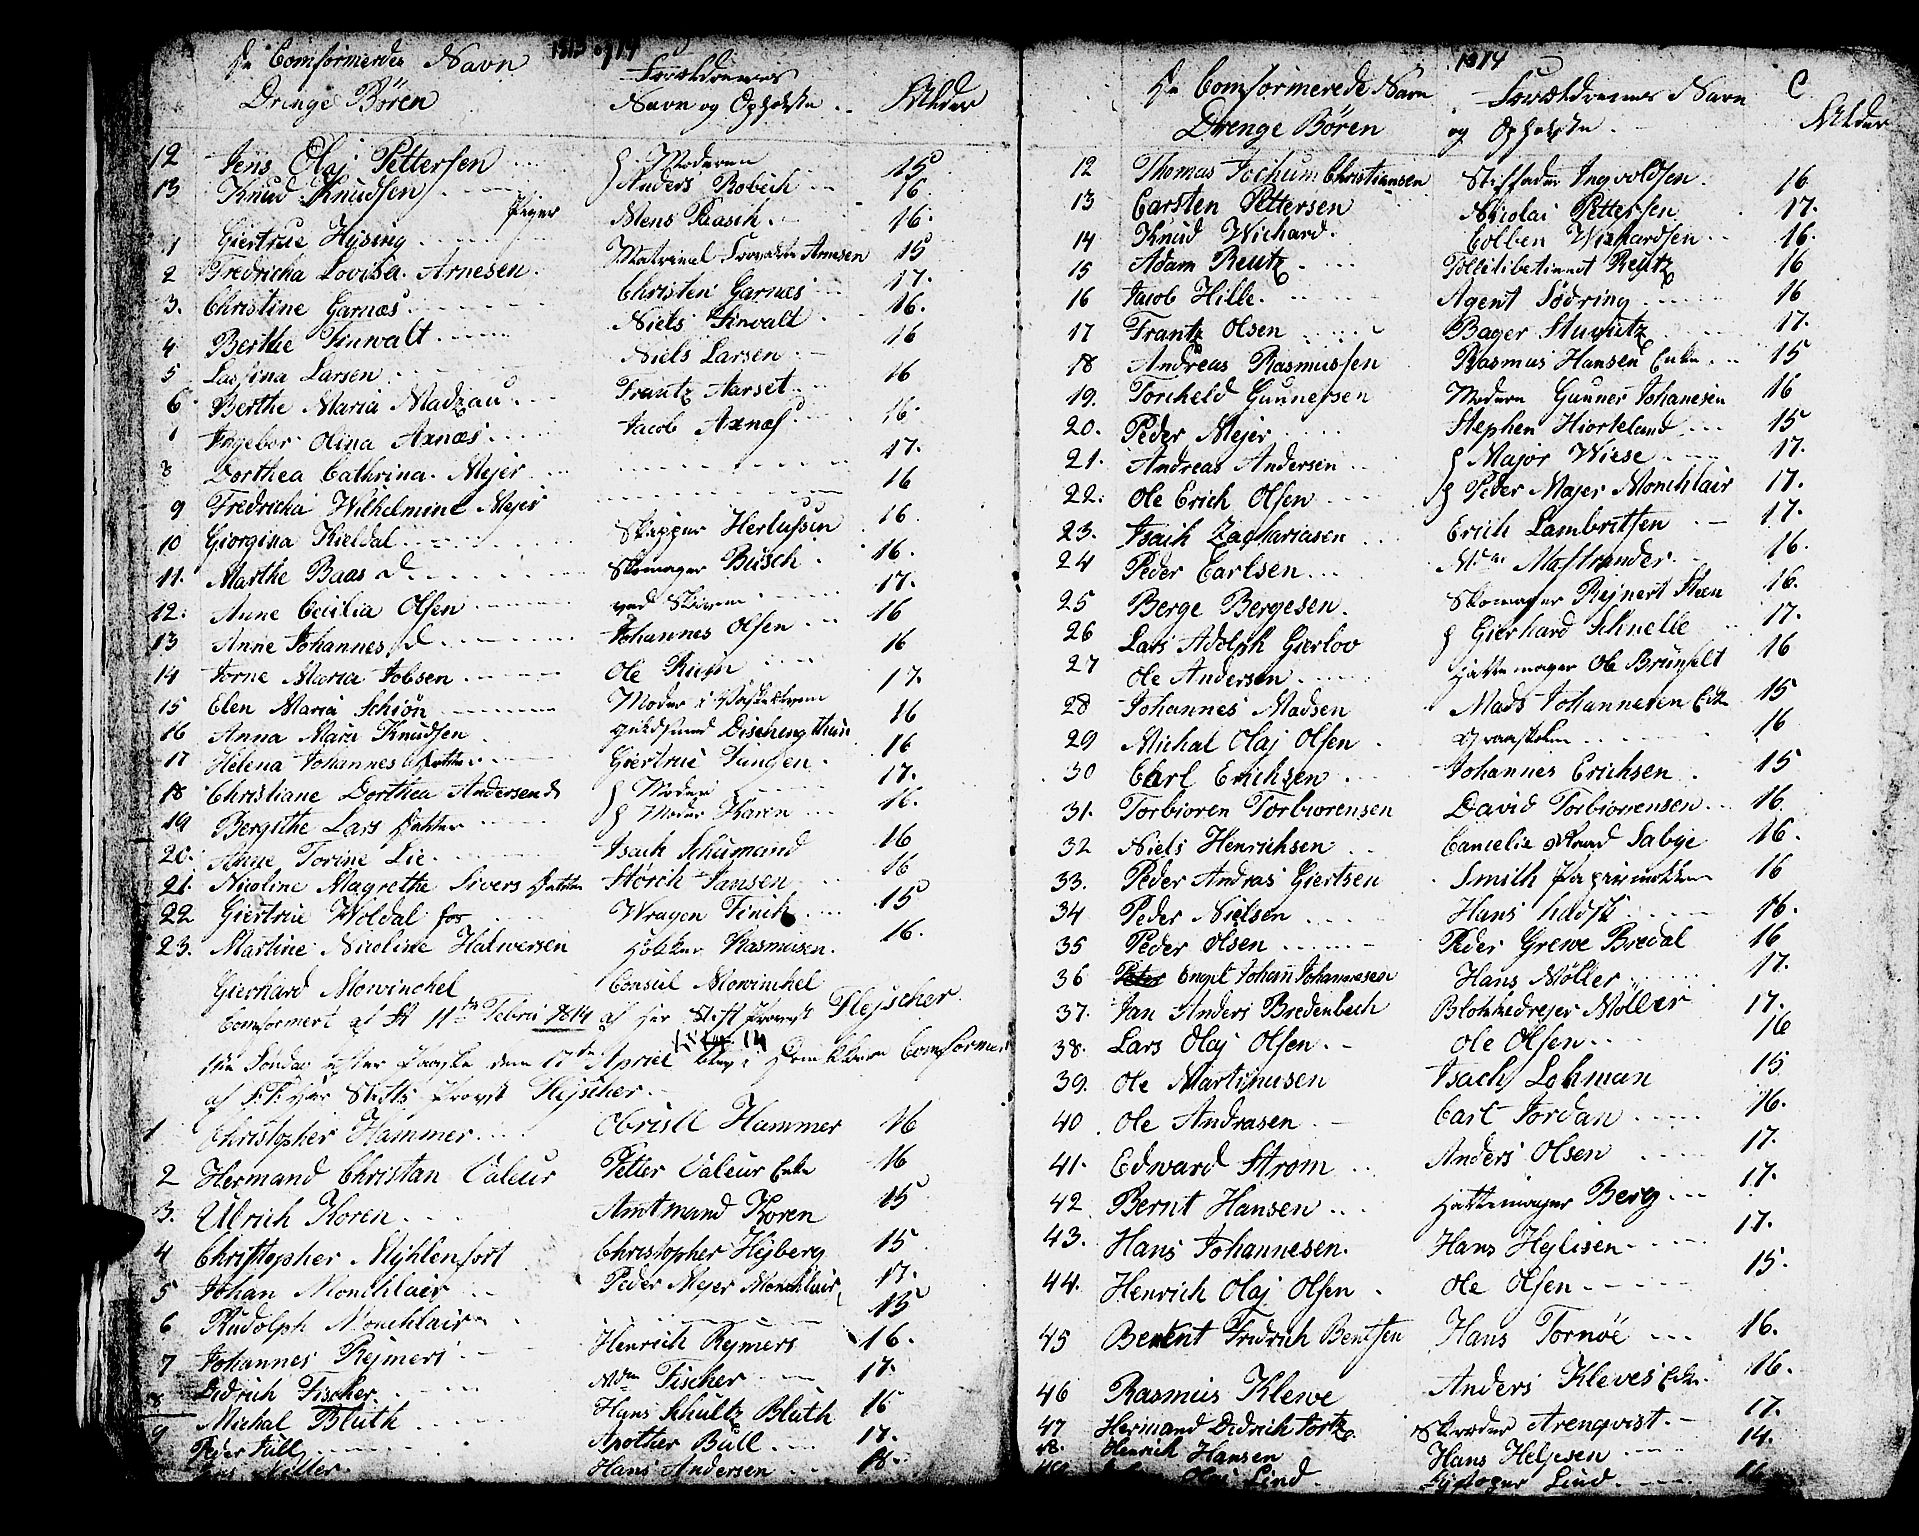 1813 og 14
De Comformerede Navn
Drenge Börn
Forældrenes
Navn og Opholdste
Alder
12 Jens Olaj Pettersen Moderen 15
13 Knud Knudsen Anders Robech 16
Piger
1 Giertrue Hysing Mens Raasch 16
2 Fredricka Lovisa Arnesen Arnesen 15
3. Christine Garnæs Christen Garnæs 17.
4 Berthe Finwalt Niels Finvalt 16.
5 Lassina Larsen Niels Larsen 16
6 Berthe Maria Madzau Frantz Aarset 16
Ingebor Olina Axnæs Jacob Axnæs 16.
8 Dorthea Cathrina Mejer 17.
9 Fredricka Wilhelmine Mejer 16
10 Giorgina Kieldal Skipper Herlufsen 16
11. Marthe Baas D. Skomager Busch 16.
12. Anne Cecilia Olsen 17.
13 Anne Johannes D. Johannes Olsen 16
14 Jorne Maria Jobsen Ole 16
15 Elen Maria Schiön Moder i 17.
16 Anna Maria Knudsen guldsmed 16
17 Helena Johannes Datter Giertrue 16
18 Christiane Dorthea Andersen D. Moder 17.
19 Bergithe Lars Datter Moder Karen 16.
20. Anne Torine Lie Isach Schumand 16
21. Nicoline Magrethe Sivers Datter Storch Jansen 16
22 Giertrue Woldal Wragen Finck 15
23. Martine Nicoline Halwersen Hökker Rasmusen 16.
Gierhard Mowinckel Consul Mowinckel
Comformert af d 11te Febru 1814 af Her Stift Provst Flejscher
1ste Söndag efter Paaske den 17de Apriel blev i Domkirken Comformert
af S:T: Her Stifts Provst Flejscher
1 Christopher Hammer Obristl Hammer 16
2 Hermand Christian Valeur Petter Valeur Enke 16
3. Ulrich Koren Amtmand Koren 15
4 Christopher Myhlenfort Christopher Hejberg 15
5 Johan Monchlair Peder Mejer Monchlair 17.
6 Rudolph Monchlair 15
7 Johannes Rejmers Henrich Rejmers 16.
8 Didrich Fischer Fischer 17.
9 Michal Bluth Hans Schultz Bluth 16
Peder Bull Apother Bull 17.
Möller Hans Andersen 18.
1814
De Comformerede Navn
Drenge Börn
Forældrenes Navn
og Opholdste
Alder
12 Thomas Jochum Christiansen Stiffader Ingvoldsen 16
13 Carsten Pettersen Nicolai Pettersen 17.
14 Knud Wichard Colben Wichardsen 16.
15 Adam Reutz Reutz 16
16 Jacob Hille Agent Södring 16
17 Frantz Olsen Bager 17.
18 Andreas Rasmussen Rasmus Hansen Enke 15
19. Torcheld Gunnersen Moderen Gunner Johanesen 16
20. Peder Mejer Stephen Hiorteland 15
21. Andreas Andersen Major Wiese 17.
22. Ole Erich Olsen Peder Majer Monchlair 17.
23. Isach Zachariasen Erich Lambritsen 17.
24 Peder Carlsen Mastrander 16.
25 Berge Bergesen Skomager Rejnert Steen 16.
26 Lars Adolph Gierlov Gierhard Schnelle 17.
27 Ole Andersen Hattemager Ole Brünfelt 16
28 Johannes Madsen Mads Johannesen Enk 15
29 Michal Olaj Olsen 16
30 Carl Erichsen Johannes Erichsen 15
31. Torbioren Torbiorensen David Torbiorensen 16
32 Niels Henrichsen Cancelie Raad Sabye 16.
33. Peder Andras Giertsen Smith Papirmöllen 16
34 Peder Nielsen Hans 16.
35 Peder Olsen Peder Grewe Bredal 16
36 Engel Johan Johannesen Hans Möller 17.
37. Jan Anders Bredenbech Blokkedrejer Möller 17.
38. Lars Olaj Olsen Ole Olsen 16
39. Ole Martinusen Isach Lohman 15
40 Ole Andrasen Carl Jordan 16.
41. Edward Strøm Anders Olsen 17.
42 Bernt Hansen Hattemager Berg 17.
43. Hans Johannesen Hans Hejlisen 17.
44. Henrich Olaj Olsen Ole Olsen 15.
45 Berent Fridrich Bentsen Hans Tornöe 16.
46 Rasmus Klewe Anders Kleves Enke 16.
47 Hermand Didrich Tortz Skræder Arenqvist 17.
48. Henrich Hansen Hans Heljesen 14.
Olaj Lind Lind 16